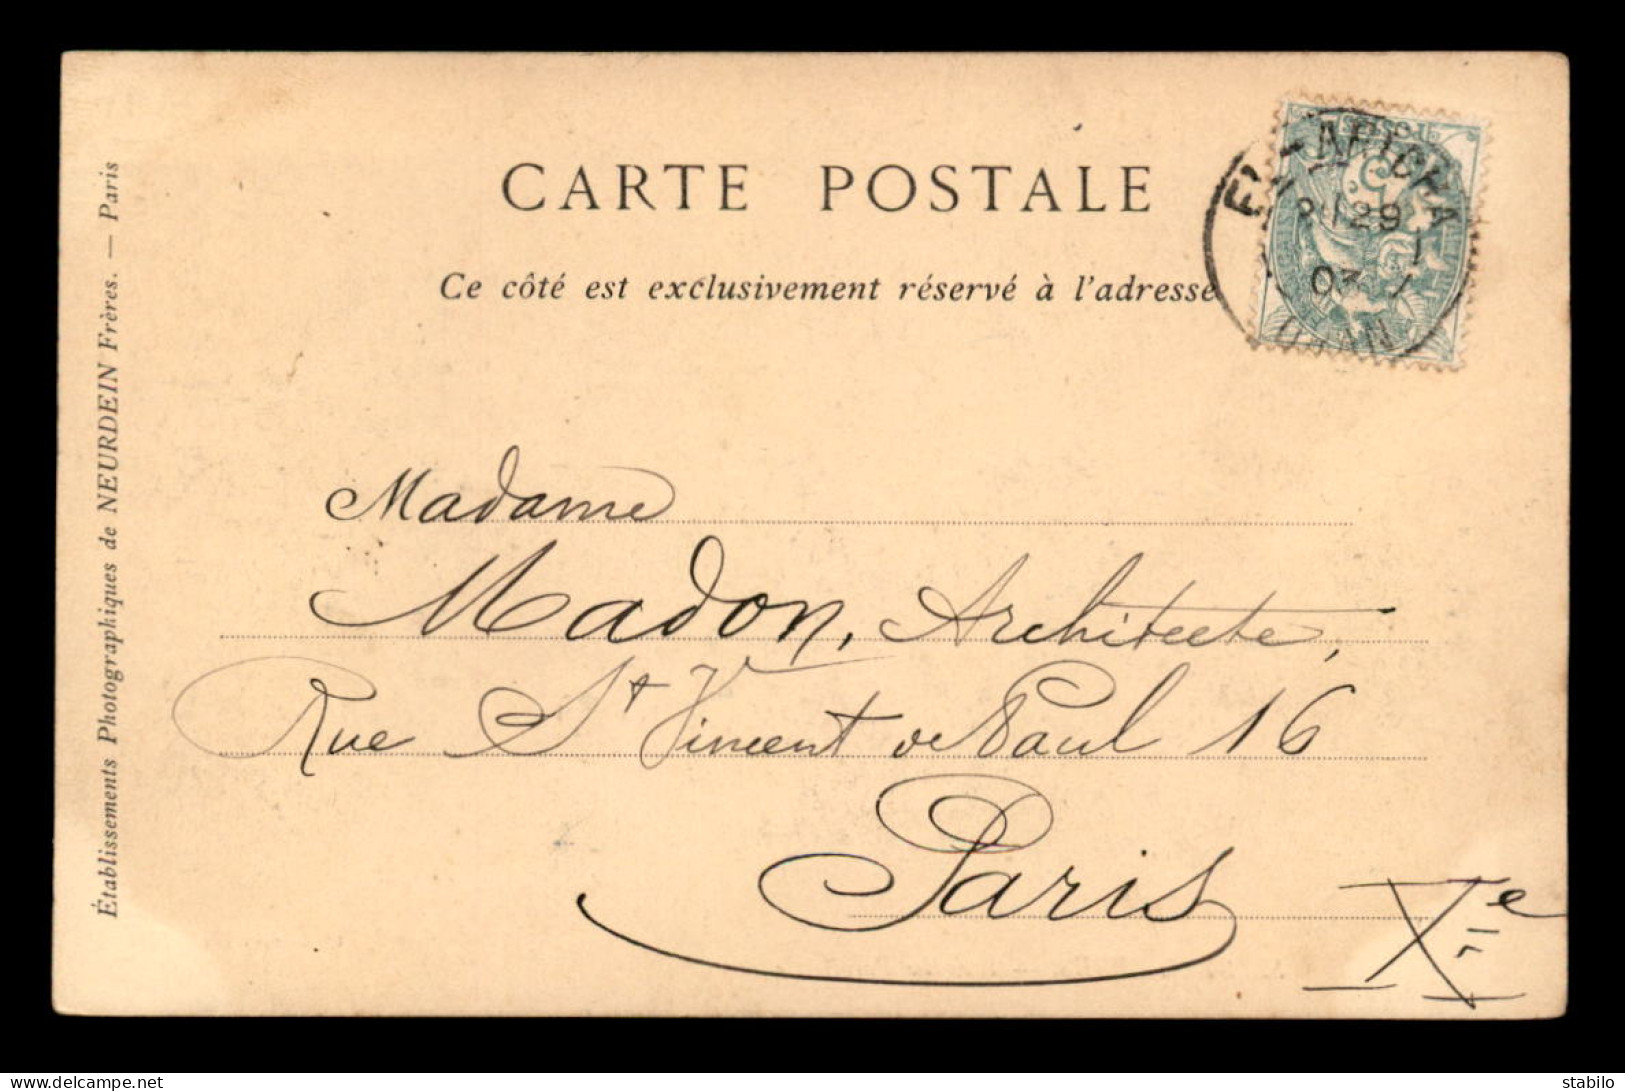 CARTE POSTALE
Ce côté est exclusivement réservé à l'adresse
EL-ARICHA
29
03
ORAN
Madame
Madon, Architecte,
Rue St Vincent de Paul 16
Paris
Xe
Établissements Photographiques de NEURDEIN Frères. — Paris
delcampe.net
stabilo